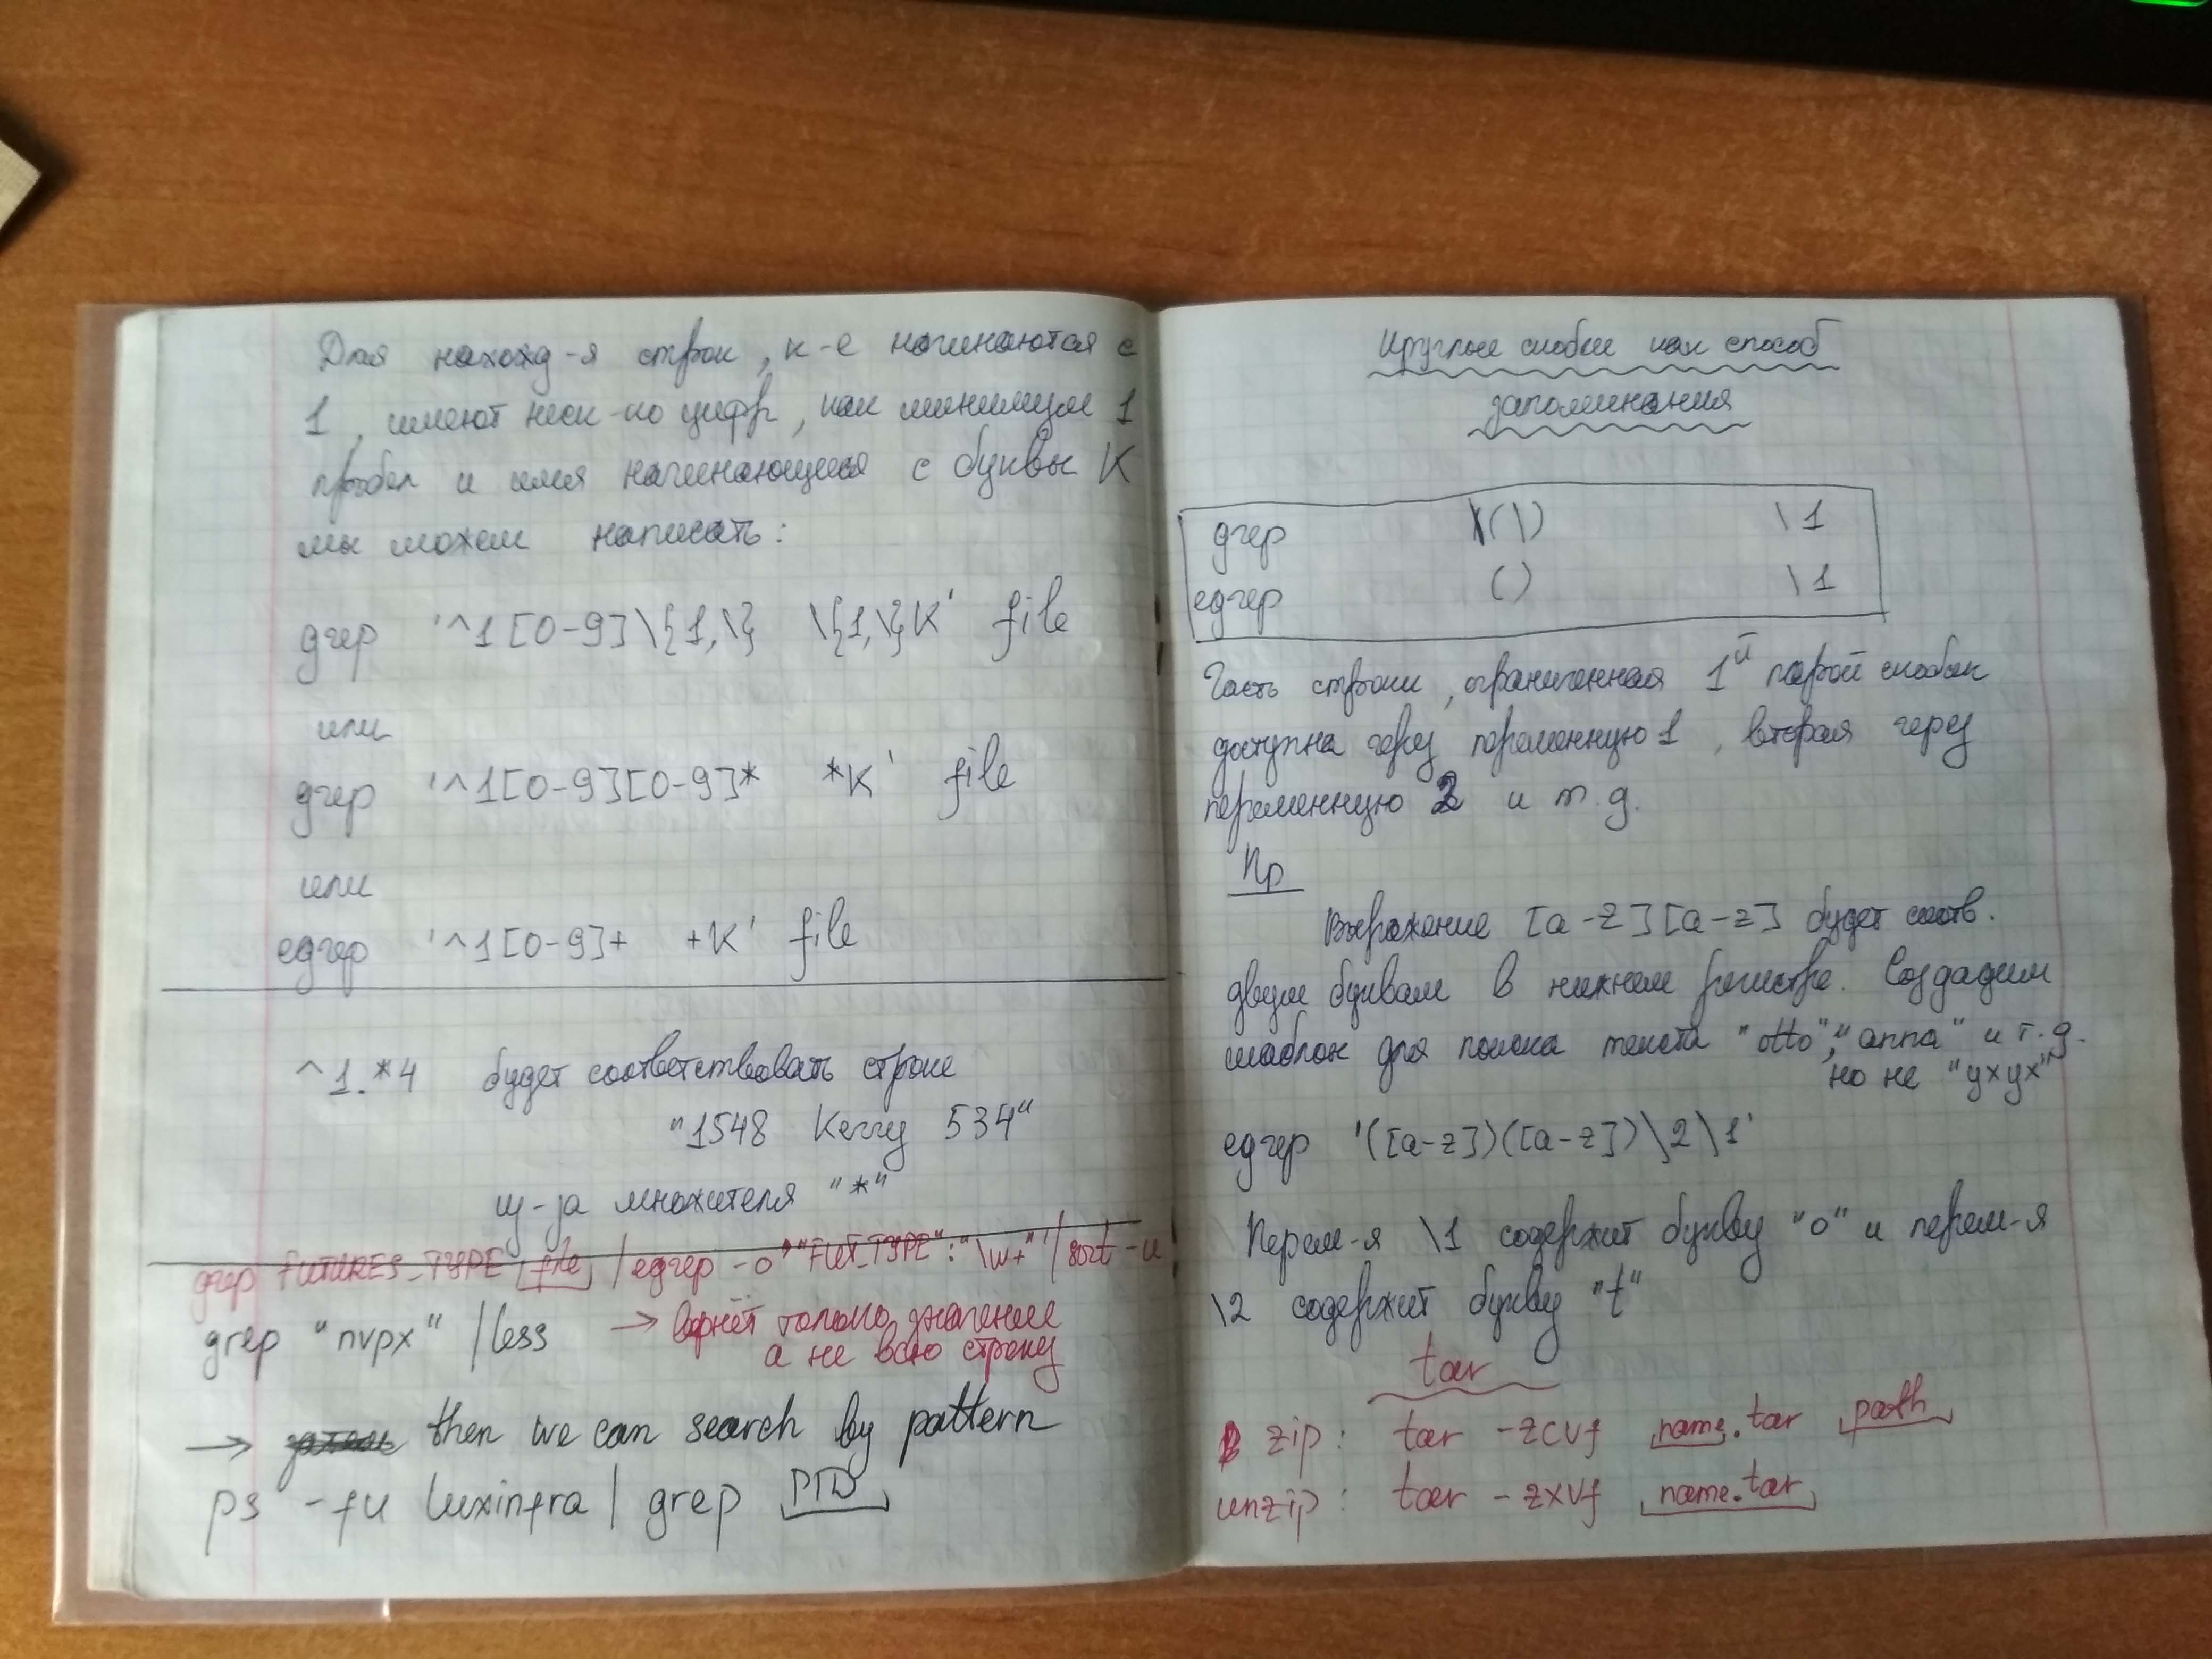 Для нахожд-я строк, к-е начинаются с
1, имеют неск-ко цифр, как минимум 1
пробел и имя начинающееся с буквы К
мы можем написать:
дгер '^1[0-9]\{1,\} \{1,\}K' file
или
дгер '^1[0-9][0-9]* *K' file
или
едгер '^1[0-9]+ +K' file
^1.*4 будет соответствовать строке
"1548 Kerry 534"
из-за множителя "*"
дгер FUTURES_TYPE file | едгер -o '"FUT_TYPE":"\w+"' | sort -u
grep "nvpx" | less → вернёт только значение
а не всю строку
→ then we can search by pattern
ps -fu luxinfra | grep PID
Круглые скобки как способ
запоминания
дгер \(\) \1
едгер () \1
Часть строки, ограниченная 1й парой скобок
доступна через переменную 1, вторая через
переменную 2 и т.д.
Пр
Выражение [a-z][a-z] будет соотв.
двум буквам в нижнем регистре. Создадим
шаблон для поиска текста "otto", "anna" и т.д.
но не "yxyx"
едгер '([a-z])([a-z])\2\1'
Перем-я \1 содержит букву "o" и перем-я
\2 содержит букву "t"
tar
zip: tar -zcvf name.tar path
unzip: tar -zxvf name.tar